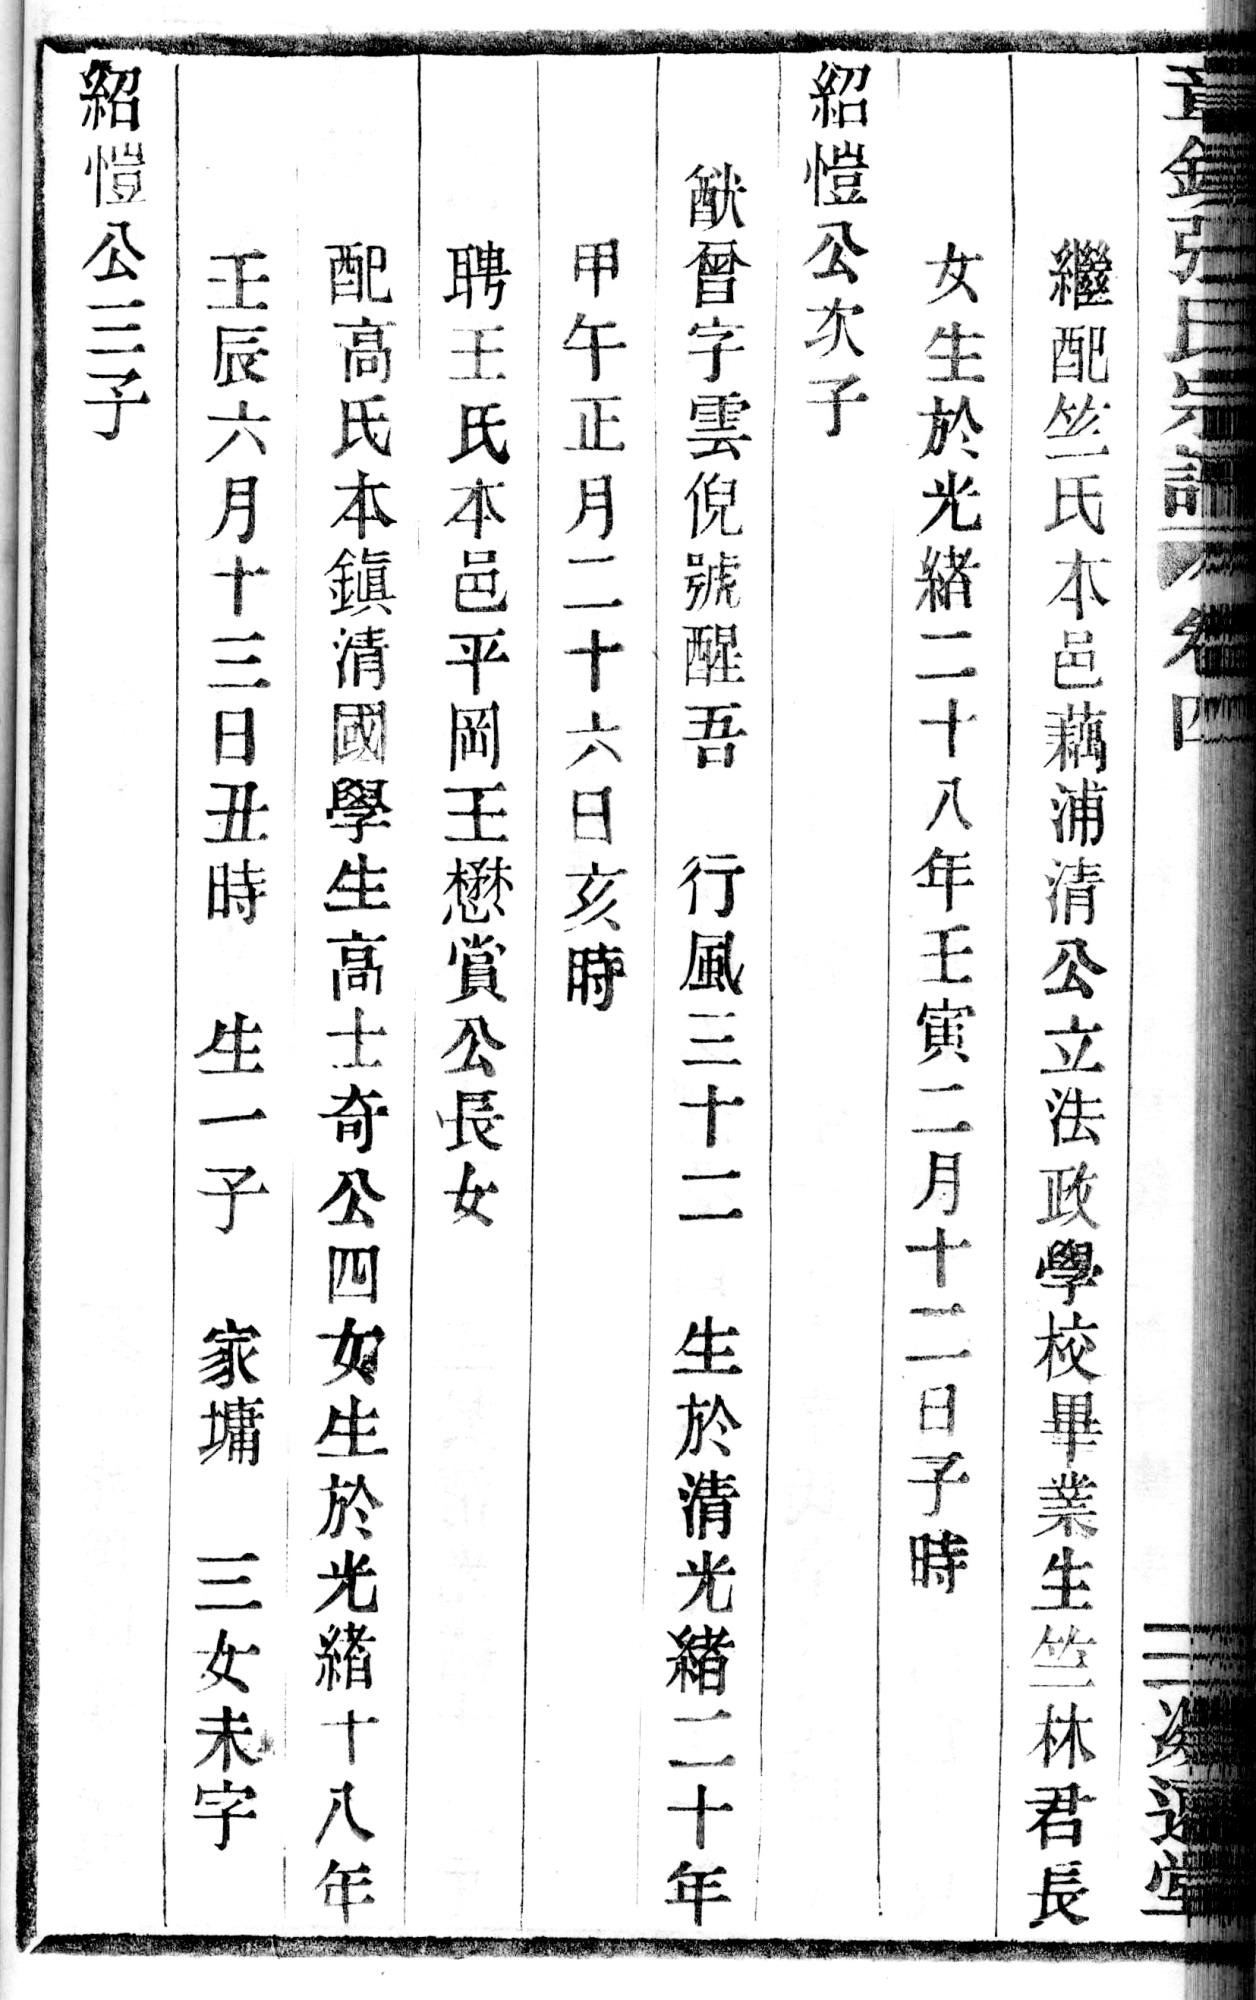 章鎮張氏宗譜 卷四 三 堂
繼配竺氏本邑藕浦清公立法政學校畢業生竺林君長
女生於光緒二十八年壬寅二月十二日子時
紹愷公次子
猷曾字雲倪號醒吾 行風三十二 生於清光緒二十年
甲午正月二十六日亥時
聘王氏本邑平岡王懋賞公長女
配高氏本鎭清國學生高士奇公四女生於光緒十八年
壬辰六月十三日丑時 生一子 家墉 三女未字
紹愷公三子